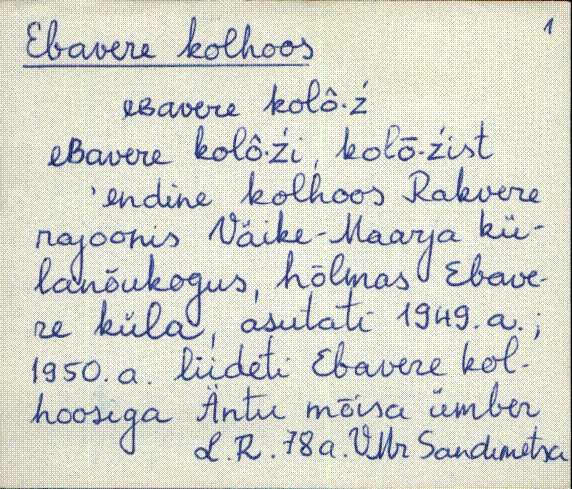 1
Ebavere kolhoos
eʙavere kolô·ź
eʙavere kolô·źi, kolō·źist
'endine kolhoos Rakvere
rajoonis Väike-Maarja kü-
lanõukogus, hõlmas Ebave-
re küla, asutati 1949. a.;
1950. a. liideti Ebavere kol-
hoosiga Äntu mõisa ümber
L.R. 78 a. VMr Sandimetsa